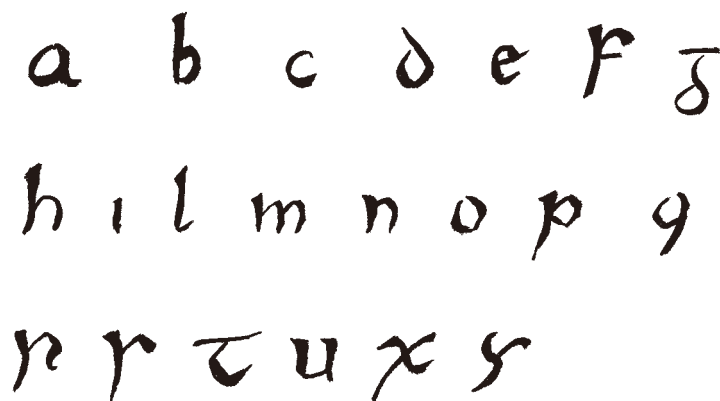 a b c d e f g
h ı l m n o p q
r s t u x y